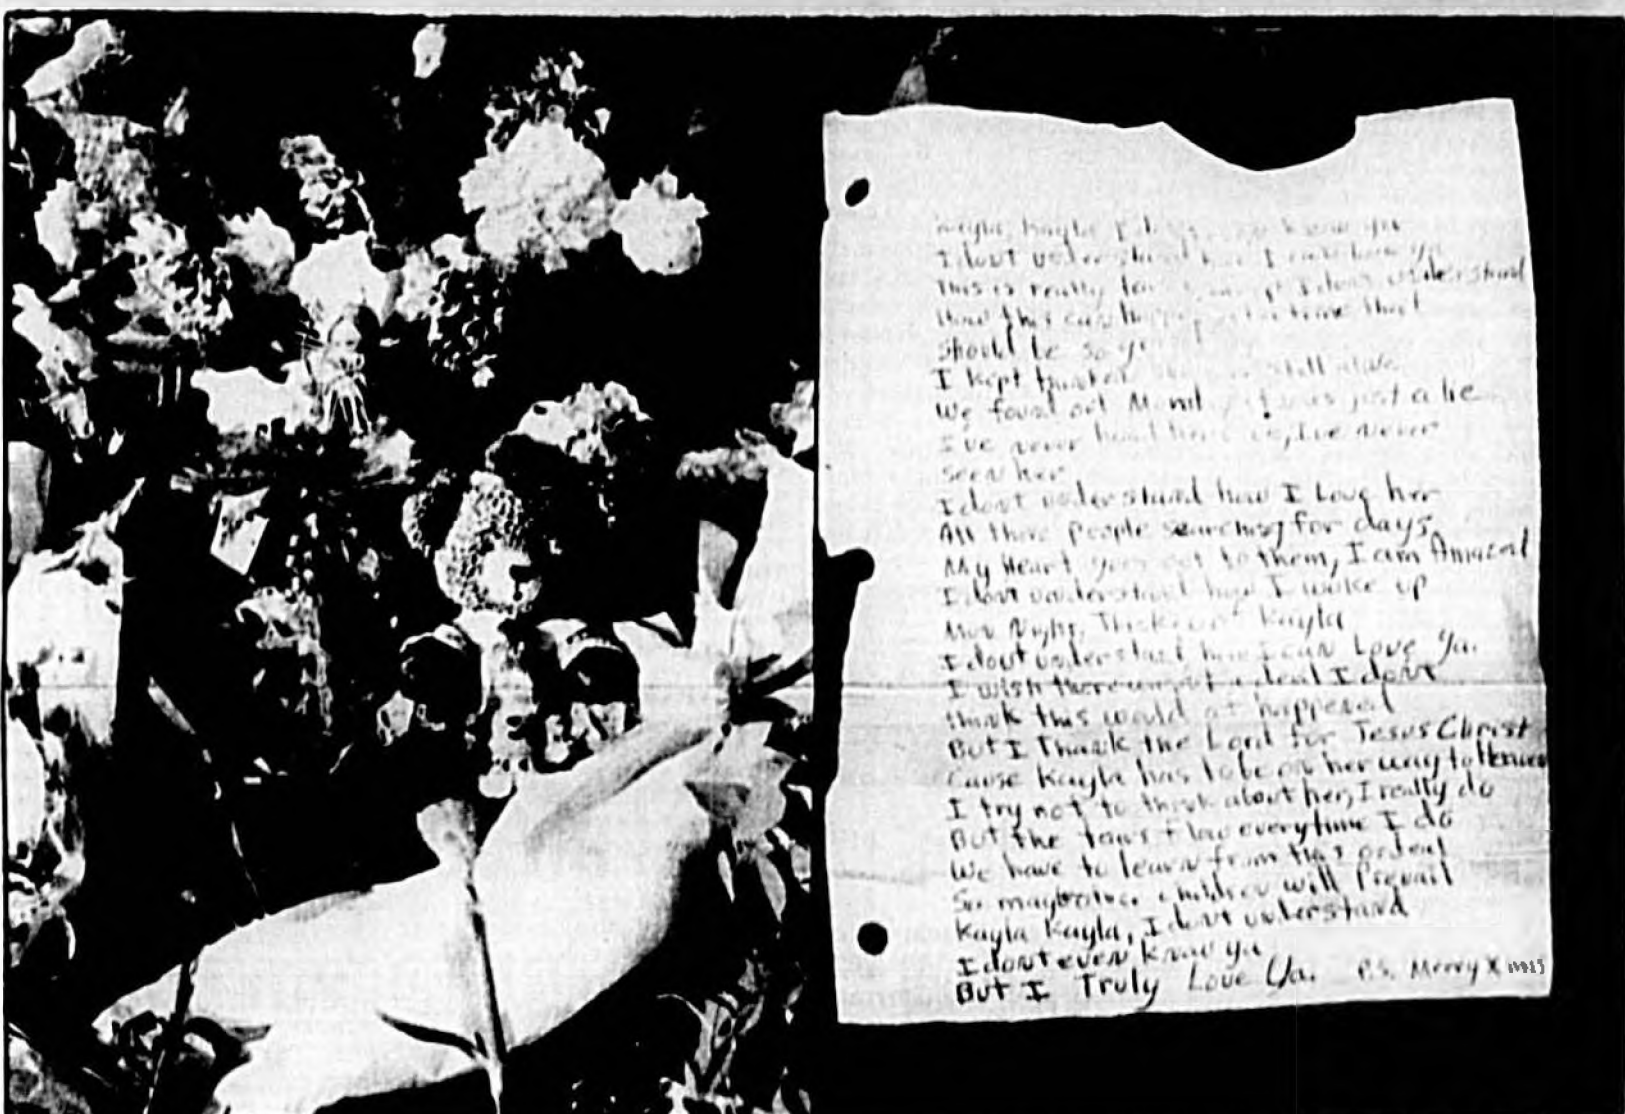 Kayla, Kayla I know ya
I dont understand how I can love ya
This is really I dont understand
How this can happen time that
Should be so
I kept still alive
We found out Monday it was just a lie
I've never heard I've never
Seen her
I dont understand how I Love her
All those people searching for days
My Heart goes out to them, I am Amazed
I dont understand how I woke up
Mon Night, Thinking of Kayla
I dont understand how I can Love Ya.
I wish there wasn't a deal I dont
think this would of happened
But I Thank the Lord for Jesus Christ
Cause Kayla has to be on her way to Heaven
I try not to think about her, I really do
But the tears flow everytime I do
We have to learn from this ordeal
So maybe other children will Prevail
Kayla Kayla, I dont understand
I dont even know ya
But I Truly Love Ya. P.S. Merry X